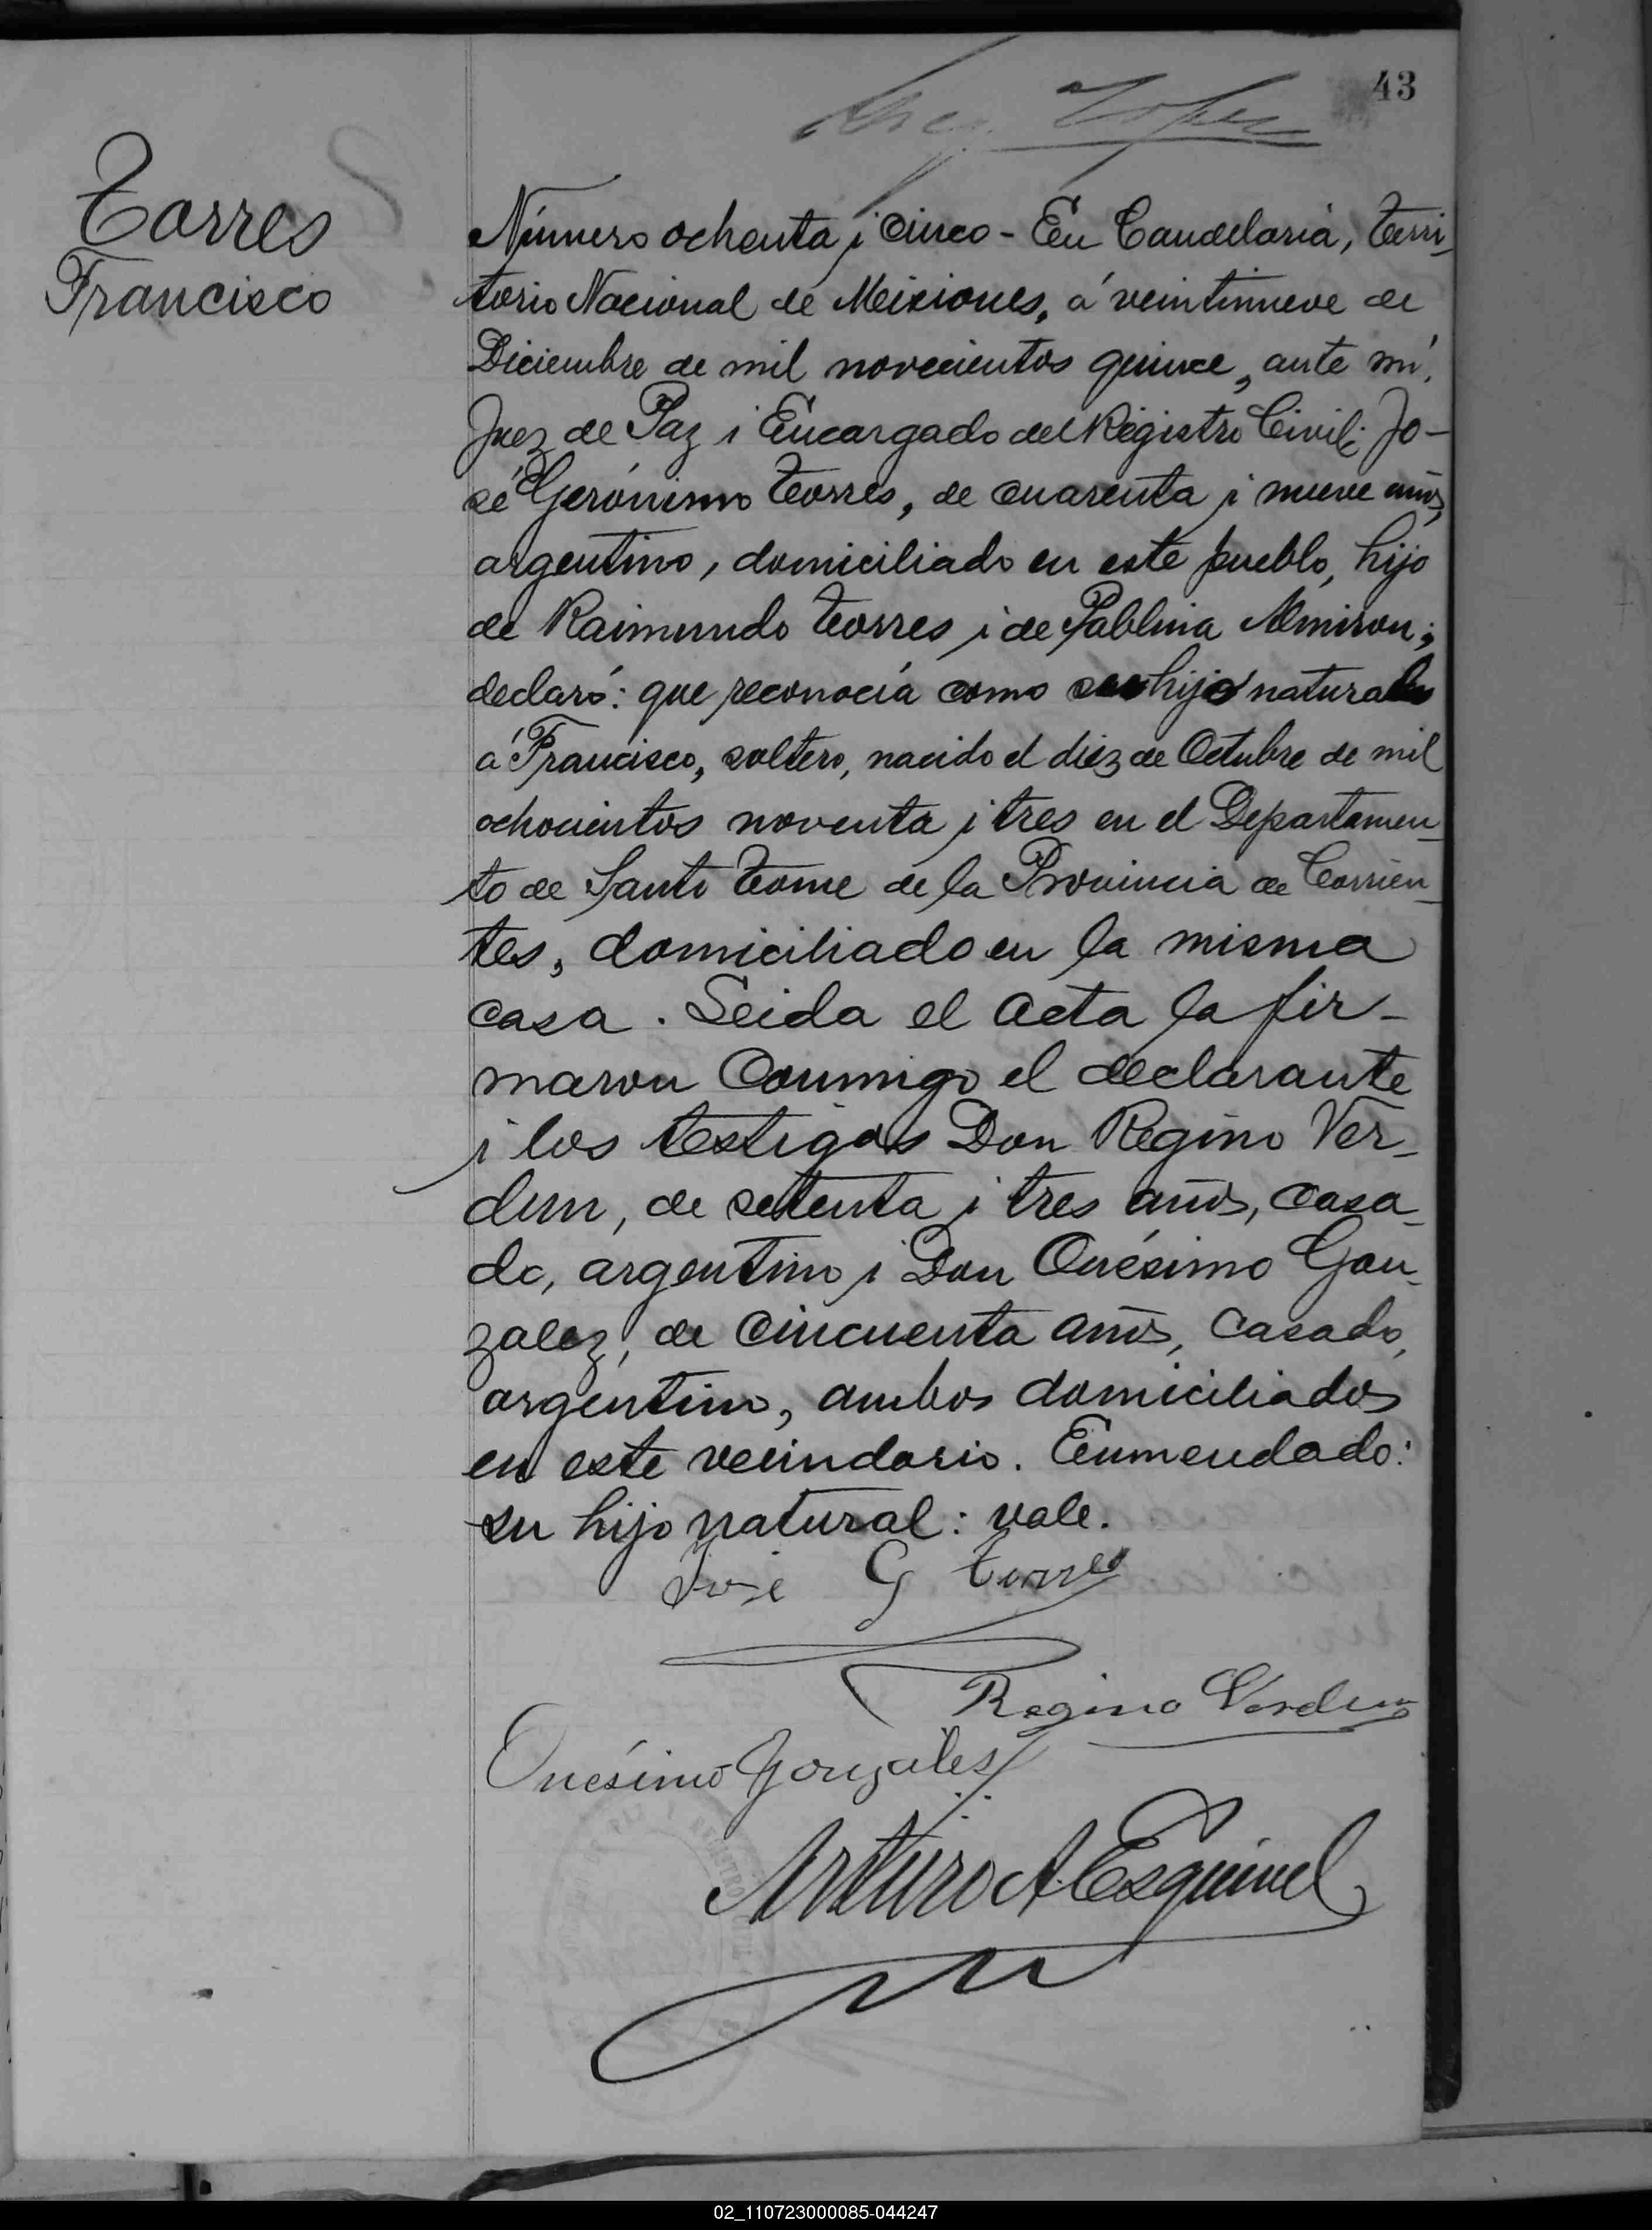 43
Torres
Francisco
Número ochenta i cinco - En Candelaria, Terri-
torio Nacional de Misiones, á veintinueve de
Diciembre de mil novecientos quince, ante mí,
Juez de Paz i Encargado del Registro Civil: Jo-
sé Gerónimo Torres, de cuarenta i nueve años,
argentino, domiciliado en este pueblo, hijo
de Raimundo Torres i de Pablina Almiron;
declaró: que reconocía como su hijo natural
á Francisco, soltero, nacido el diez de Octubre de mil
ochocientos noventa i tres en el Departamen-
to de Santo Tome de la Provincia de Corrien-
tes, domiciliado en la misma
casa. Leida el acta la fir-
maron conmigo el declarante
i los testigos Don Regino Ver-
dun, de setenta i tres años, casa-
do, argentino i Don Onésimo Gon-
zalez, de cincuenta años, casado,
argentino, ambos domiciliados
en este vecindario. Enmendado:
su hijo natural: vale.
José G Torres
Regino Verdun
Onésimo Gonzáles
Arturo A Esquivel
02_110723000085-044247